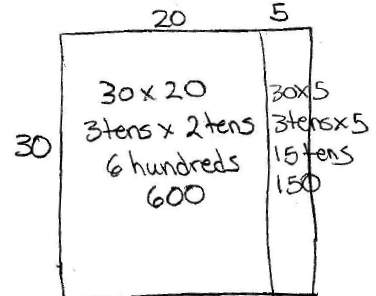 20 5
30
30 x 20
3tens x 2tens
6 hundreds
600
30x5
3tensx5
15tens
150